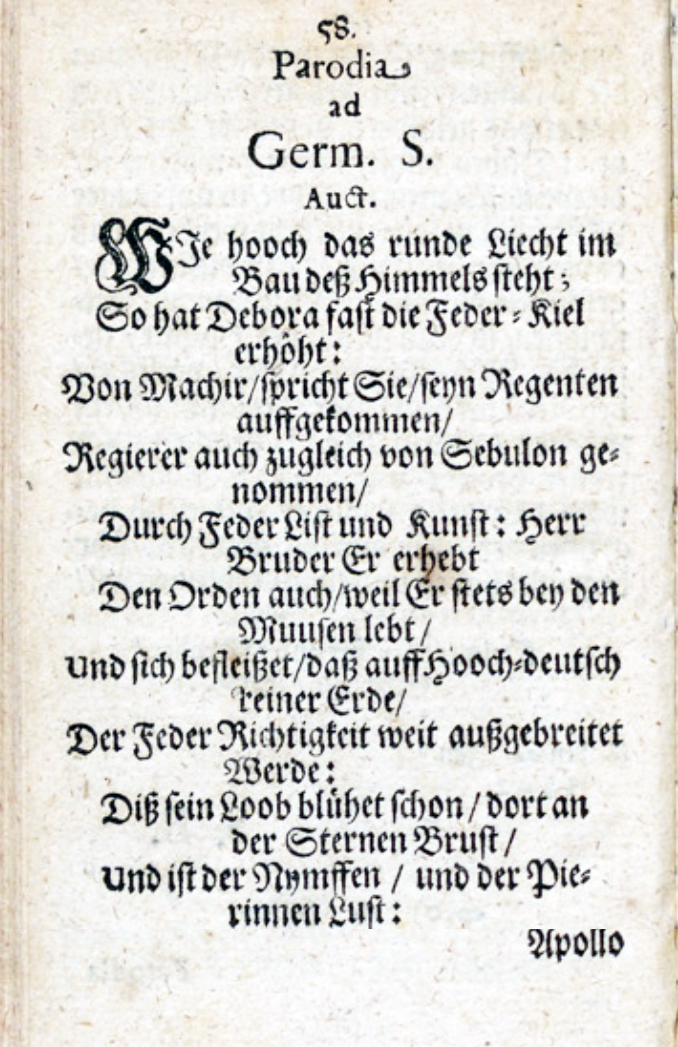 58.
Parodia
ad
Germ. S.
Auct.
WJe hooch das runde Liecht im
Bau deß Himmels steht;
So hat Debora fast die Feder-Kiel
erhöht:
Von Machir/spricht Sie/seyn Regenten
auffgekommen/
Regierer auch zugleich von Sebulon ge-
nommen/
Durch Feder List und Kunst: Herr
Bruder Er erhebt
Den Orden auch/weil Er stets bey den
Muusen lebt/
und sich befleißet/daß auff Hooch-deutsch
reiner Erde/
Der Feder Richtigkeit weit außgebreitet
Werde:
Diß sein Loob blühet schon/dort an
der Sternen Brust/
und ist der Nymffen/und der Pie-
rinnen Lust:
Apollo